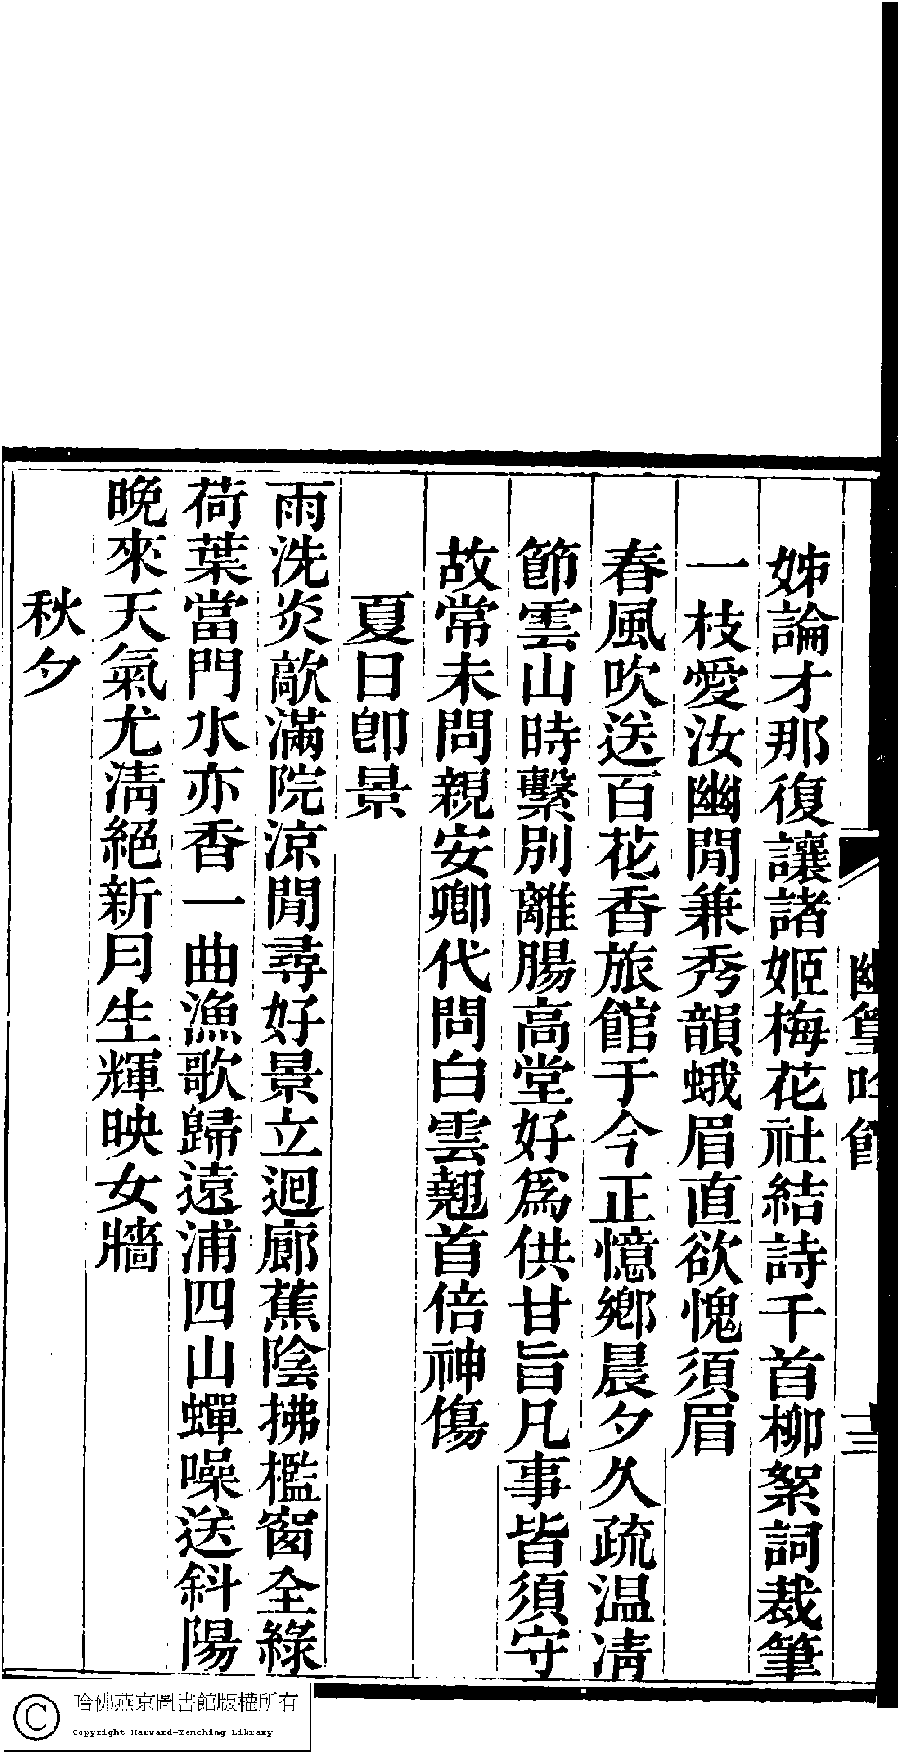 幽篁吟館
十三
姊論才那復讓諸姬梅花社結詩千首柳絮詞裁筆
一枝愛汝幽閒兼秀韻蛾眉直欲愧須眉
春風吹送百花香旅館于今正憶鄉晨夕久疏温凊
節雲山時繫別離腸高堂好爲供甘旨凡事皆須守
故常未問親安卿代問白雲翹首倍神傷
夏日卽景
雨洗炎歊滿院涼閒尋好景立迴廊蕉陰拂檻窗全綠
荷葉當門水亦香一曲漁歌歸遠浦四山蟬噪送斜陽
晚來天氣尤淸絕新月生輝映女牆
秋夕
哈佛燕京圖書館版權所有
Copyright Harvard-Yenching Library